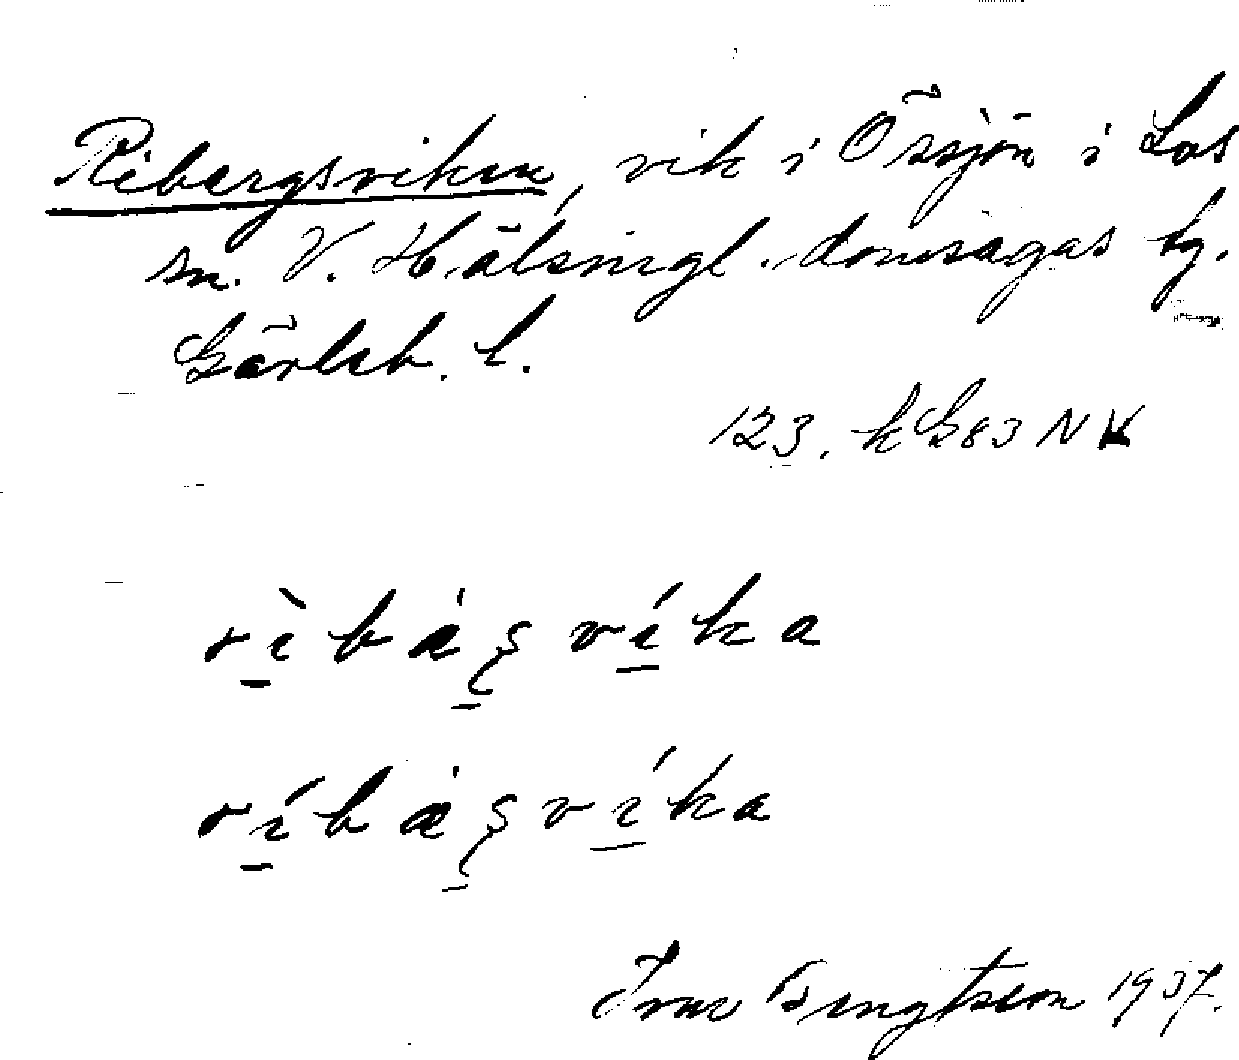 Ribergsviken, vik i Össjön i Los
sn. V. Hälsingl. domsagas tg.
Gävleb. l.
123. k G83 NV
rìbàʂvíka
ríbàʂvíka
Ivar Bengtsson 1937.